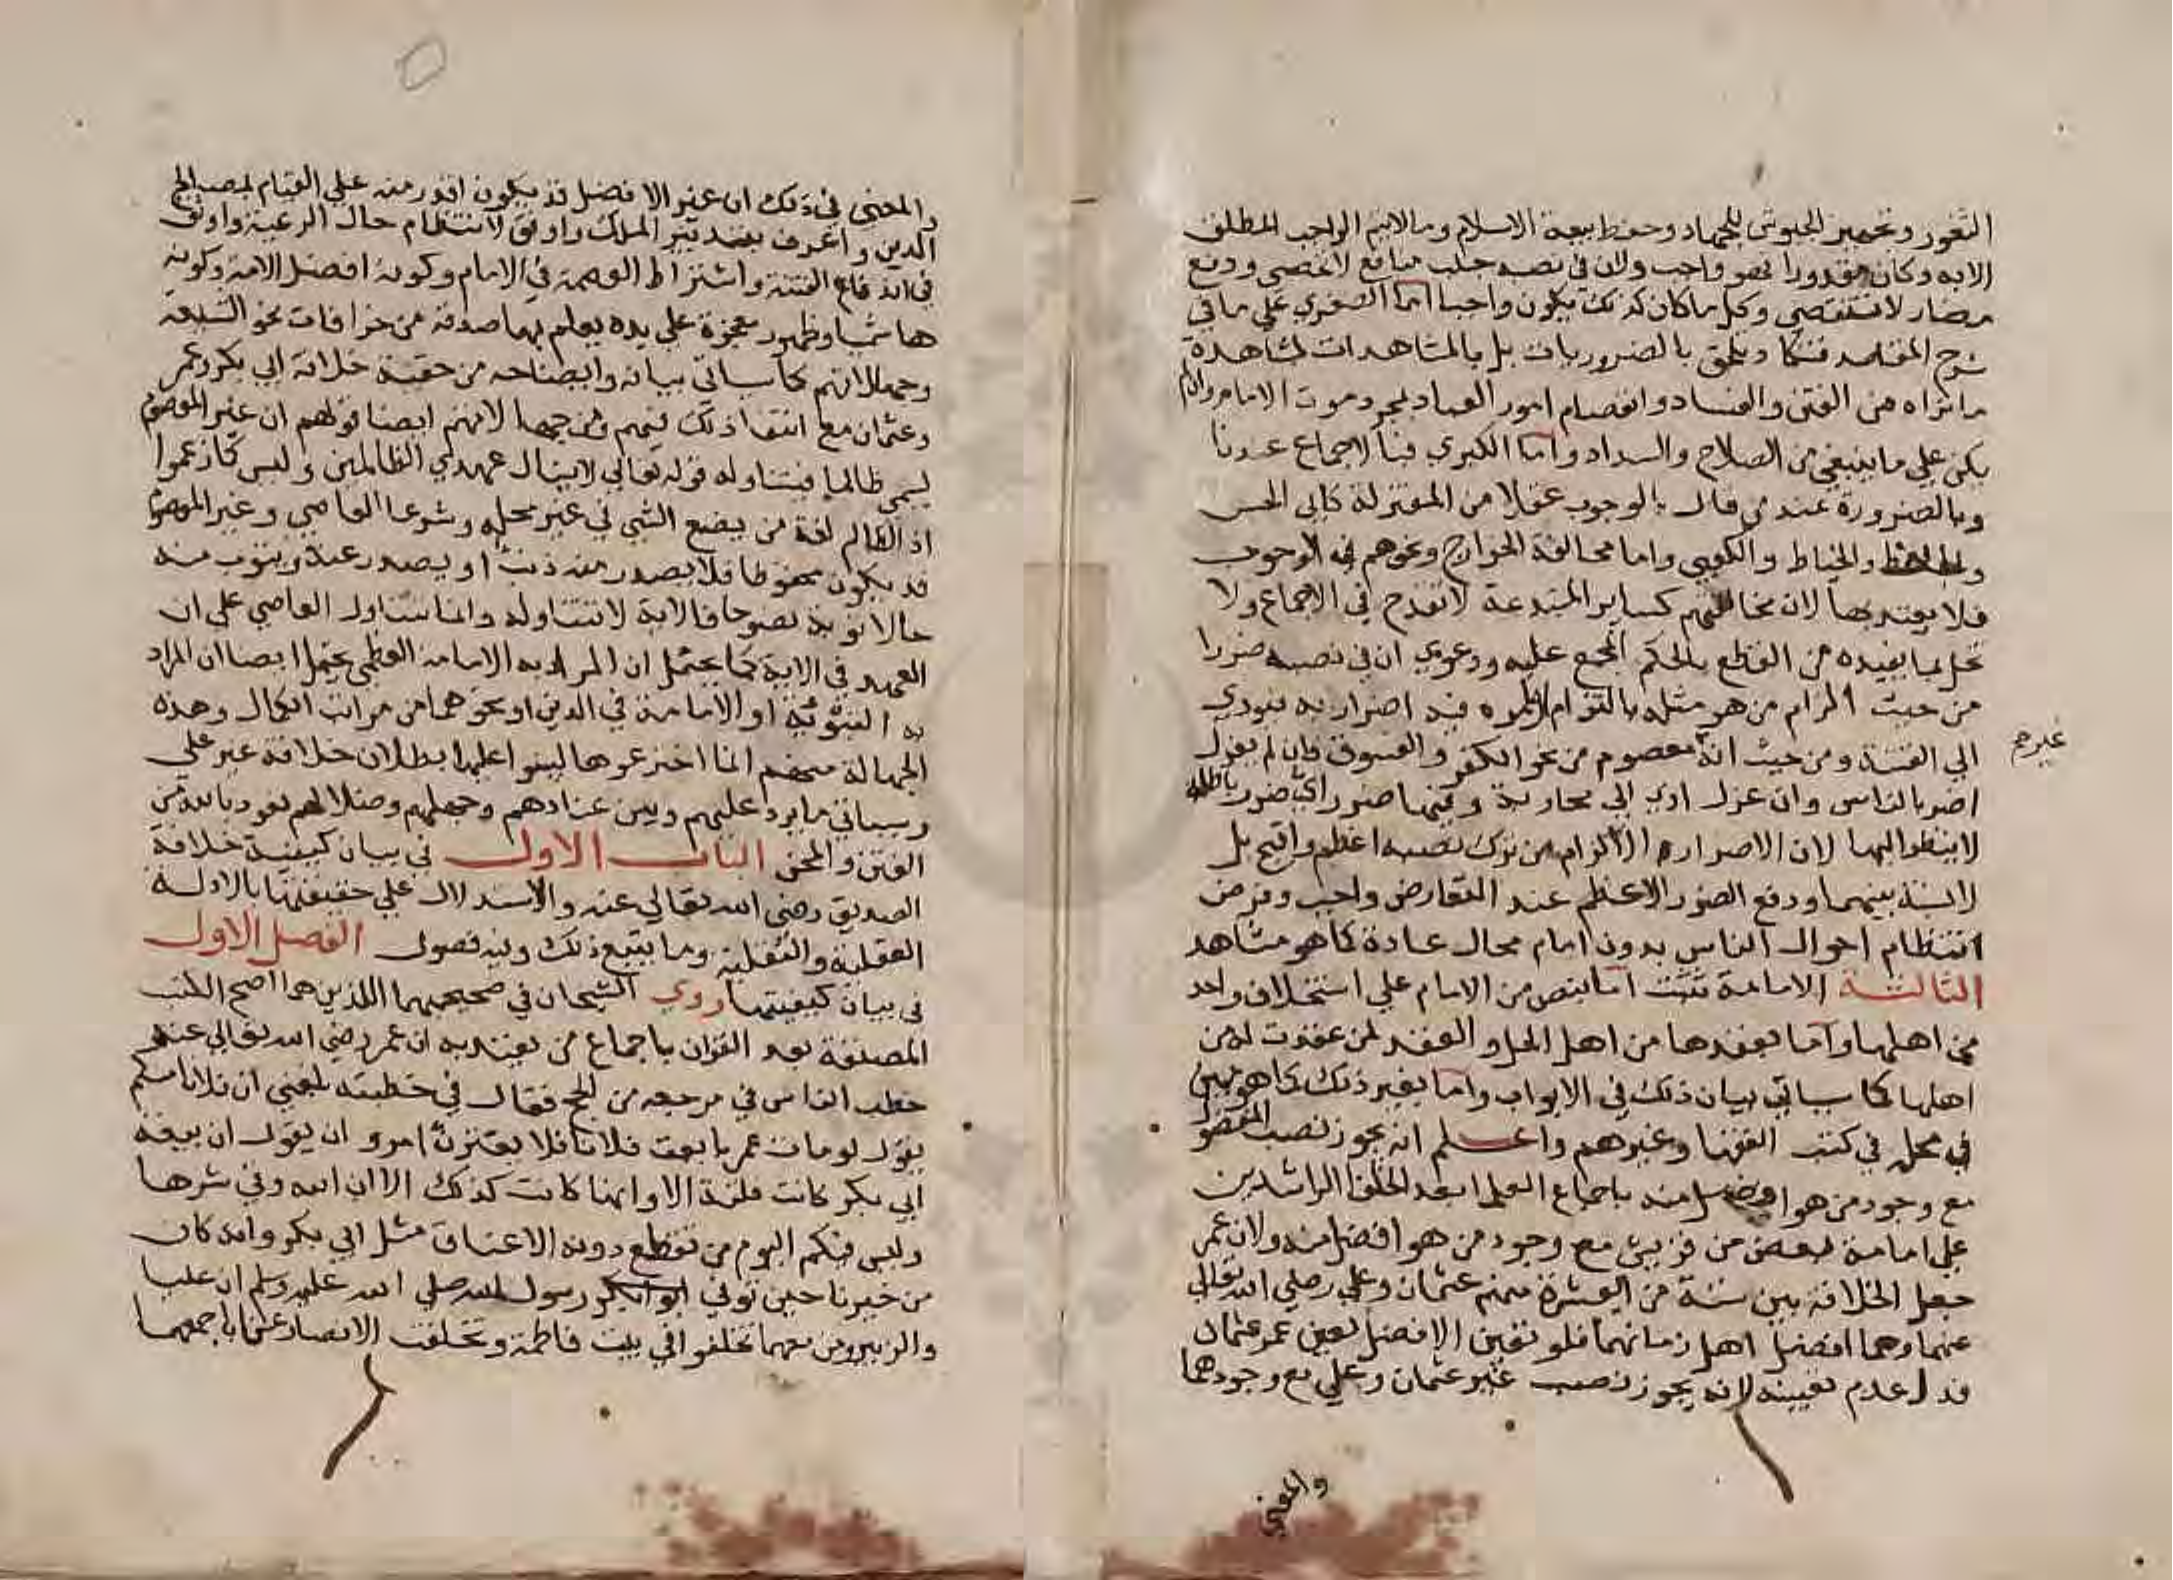 الثغور وتجهيز الجيوش للجهاد وحفظ بيعة الاسلام وما لا يتم الواجب المطلق
الا به وكان مقدورا فهو واجب ولان في نصبه جلب منافع لا تحصى ودفع
مضار لا تستقصى وكل ما كان كذلك يكون واجبا اما الصغرى على ما في
شرح المقاصد فتكاد تلحق بالضروريات بل بالمشاهدات لمشاهدة
ما نراه من الفتن والفساد وانفصام امور العباد بمجرد موت الامام وان لم
يكن على ما ينبغي من الصلاح والسداد واما الكبرى فبالاجماع عندنا
وبالضرورة عند من قال بالوجوب عقلا من المعتزلة كابي الحسن
والجاحظ والخياط والكعبي واما مخالفة الخوارج ونحوهم في الوجوب
فلا يعتد بها لان مخالفتهم كساير المبتدعة لا تقدح في الاجماع ولا
تخل بما يفيده من القطع بالحكم المجمع عليه ودعوى ان في نصبه ضررا
من حيث الزام من هو مثله بالتزام اوامره فيه اضرار به فيودي
الى الفتنة ومن حيث انه معصوم من نحو الكفر والفسوق فان لم يعزل
غيرم
اضر بالناس وان عزل ادى الى محاربة وفيها ضرر اي ضرر باطلة
لا ينظر اليها لان الاضرار اللازم من ترك نصبه اعظم واقبح بل
لا نسبة بينهما ودفع الضرر الاعظم عند التعارض واجب وفرض
انتظام احوال الناس بدون امام محال عادة كما هو مشاهد
الثالثة الامامة تثبت اما بنص من الامام على استخلاف واحد
من اهلها واما بعقدها من اهل الحل والعقد لمن عقدت له من
اهلها كما سياتي بيان ذلك في الابواب واما بغير ذلك كما هو مبين
في محله في كتب الفقها وغيرهم واعلم انه يجوز نصب المفضول
مع وجود من هو افضل منه باجماع العلما بعد الخلفا الراشدين
على امامة بعض من قريش مع وجود من هو افضل منه ولان عمر
جعل الخلافة بين ستة من العشرة منهم عثمان وعلي رضي الله تعالى
عنهما وهما افضل اهل زمانهما فلو تعين الافضل لعين عمر عثمان
فدل عدم تعيينه لانه يجوز نصب غير عثمان وعلي مع وجودهما
والمعنى
والمعنى في ذلك ان غير الافضل قد يكون اقدر منه على القيام بمصالح
الدين واعرف بتدبير الملك واوفق لانتظام حال الرعية واوثق
في اندفاع الفتنة واشتراط العصمة في الامام وكونه افضل الامة وكونه
هاشميا وظهور معجزة على يده يعلم بها صدقه من خرافات نحو الشيعة
وجهالاتهم كما سياتي بيانه وايضاحه من حقية خلافة ابي بكر وعمر
وعثمان مع انتفا ذلك فيهم ومن جهالاتهم ايضا قولهم ان غير المعصوم
يسمى ظالما فيتناوله قوله تعالى لا ينال عهدي الظالمين وليس كما زعموا
اذ الظالم لغة من يضع الشي في غير محله وشرعا العاصي وغير المعصوم
قد يكون محفوظا فلا يصدر منه ذنب او يصدر عنه ويتوب منه
حالا توبة نصوحا فالاية لا تتناوله وانما تتناول العاصي على ان
العهد في الاية كما يحتمل ان المراد به الامامة العظمى يحتمل ايضا ان المراد
به النبوة او الامامة في الدين او نحوهما من مراتب الكمال وهذه
الجهالة منهم انما اخترعوها ليبنوا عليها بطلان خلافة غير علي
وسياتي ما يرد عليهم ويبين عنادهم وجهلهم وضلالهم نعوذ بالله من
الفتن والمحن الباب الاول في بيان كيفية خلافة
الصديق رضي الله تعالى عنه والاستدلال على حقيقتها بالادلة
العقلية والنقلية وما يتبع ذلك وفيه فصول الفصل الاول
في بيان كيفيتها روى الشيخان في صحيحيهما اللذين هما اصح الكتب
المصنفة بعد القران باجماع من يعتد به ان عمر رضي الله تعالى عنه
خطب الناس في مرجعه من الحج فقال في خطبته بلغني ان فلانا منكم
يقول لو مات عمر بايعت فلانا فلا يغترن امرو ان يقول ان بيعة
ابي بكر كانت فلتة الا وانها كانت كذلك الا ان الله وقي شرها
وليس فيكم اليوم من تقطع دونه الاعناق مثل ابي بكر وانه كان
من خيرنا حين توفي رسول الله صلى الله عليه وسلم ان عليا
والزبير ومن معهما تخلفوا في بيت فاطمة وتخلفت الانصار عنا باجمعها